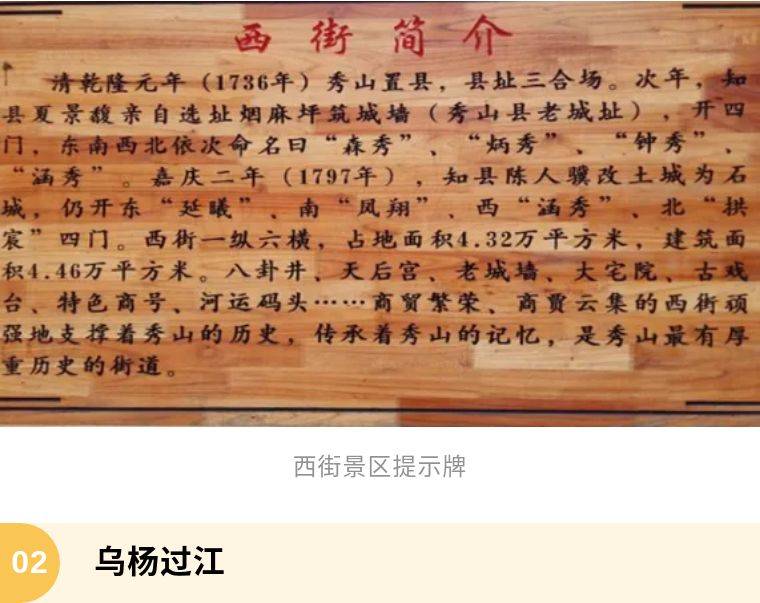 西街简介
清乾隆元年（1736年）秀山置县，县址三合场。次年，知
县夏景馥亲自选址烟麻坪筑城墙（秀山县老城址），开四
门，东南西北依次命名曰“森秀”、“炳秀”、“钟秀”、
“涵秀”。嘉庆二年（1797年），知县陈人骥改土城为石
城，仍开东“延曦”、南“凤翔”、西“涵秀”、北“拱
宸”四门。西街一纵六横，占地面积4.32万平方米，建筑面
积4.46万平方米。八卦井、天后宫、老城墙、大宅院、古戏
台、特色商号、河运码头……商贸繁荣、商贾云集的西街顽
强地支撑着秀山的历史，传承着秀山的记忆，是秀山最有厚
重历史的街道。
西街景区提示牌
02 乌杨过江